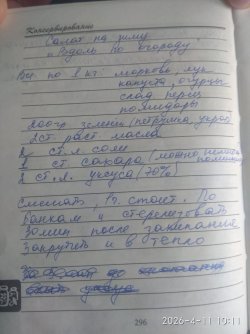 Консервирование
Салат на зиму
"Вдоль по огороду"
Все по 1 кг: морковь, лук
капуста, огурцы
слад перец
помидоры
200 г зелени (петрушка, укроп)
1 ст раст масла
2 ст.л соли
1 ст сахара (можно
2 ст.л. уксуса (70%)
Смешать, 1ч. стоит. По
банкам и стерелезовать
20 мин после закипания
Закрутить и в тепло
296
2026-4-11 10:11